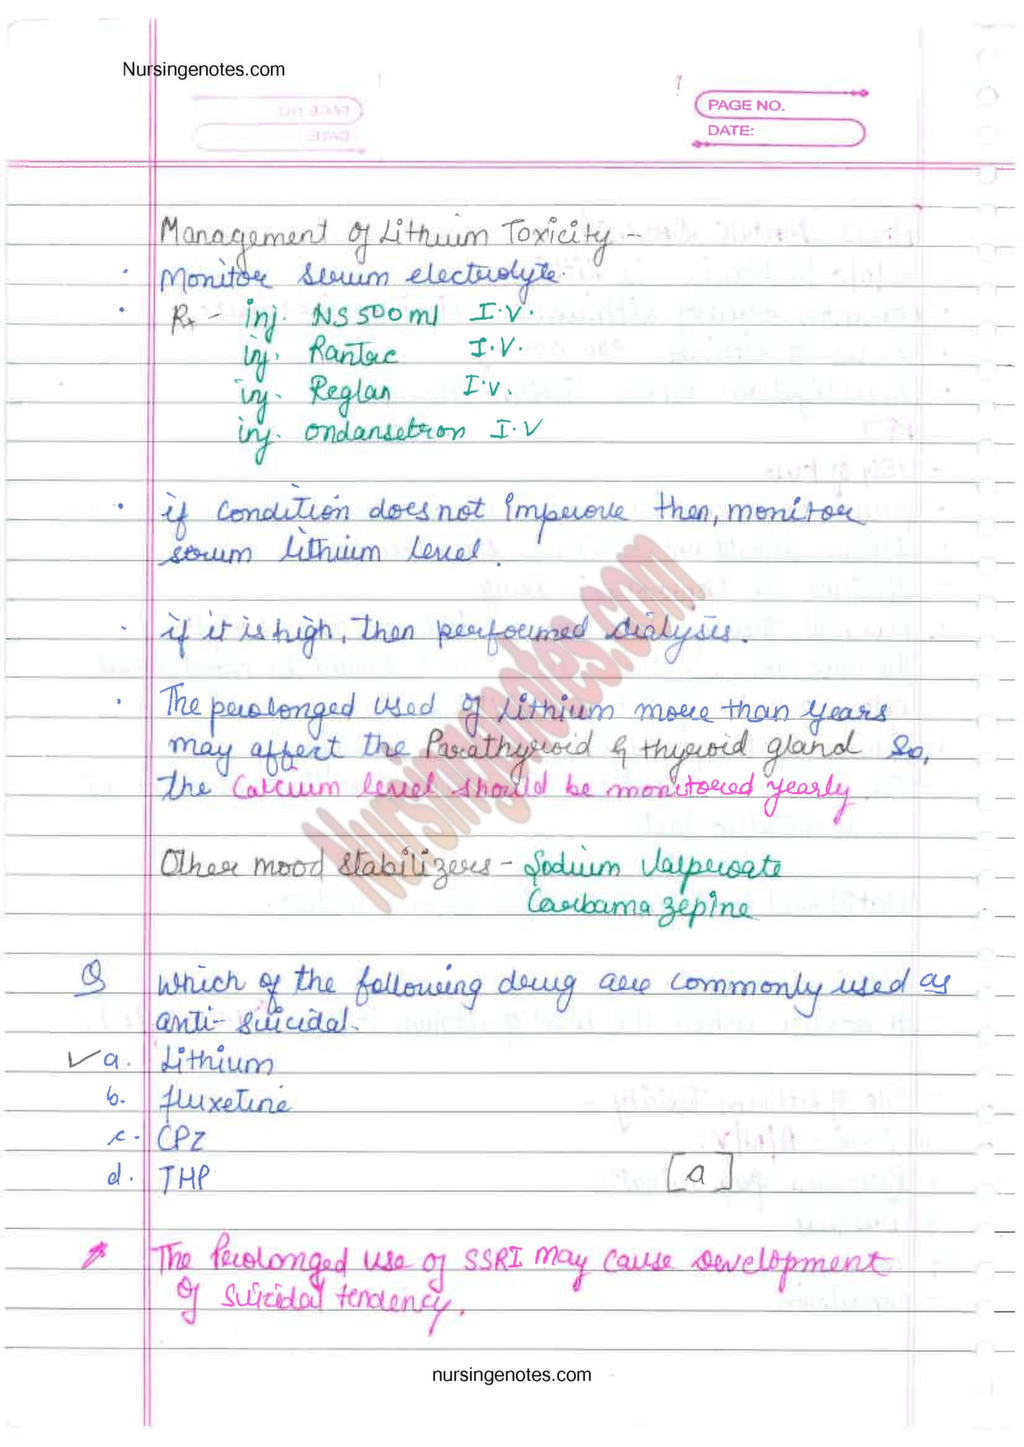 Nursingenotes.com
PAGE NO.
DATE:
Management of Lithium Toxicity -
• Monitor serum electrolyte.
• Rx - inj. NS 500ml I.V.
inj. Rantac I.V.
inj. Reglan I.V.
inj. ondansetron I.V
• if condition does not improve then, monitor
serum lithium level.
• if it is high, then performed dialysis.
• The prolonged used of Lithium more than years
may affect the Parathyroid & thyroid gland So,
the Calcium level should be monitored yearly.
Nursingnotes.com
Other mood stabilizers - Sodium Valproate
Carbamazepine
Q which of the following drug are commonly used as
anti-suicidal.
✓ a. Lithium
b. fluxetine
c. CPZ
d. THP [a]
* The Prolonged use of SSRI may cause Development
of suicidal tendency.
nursingenotes.com